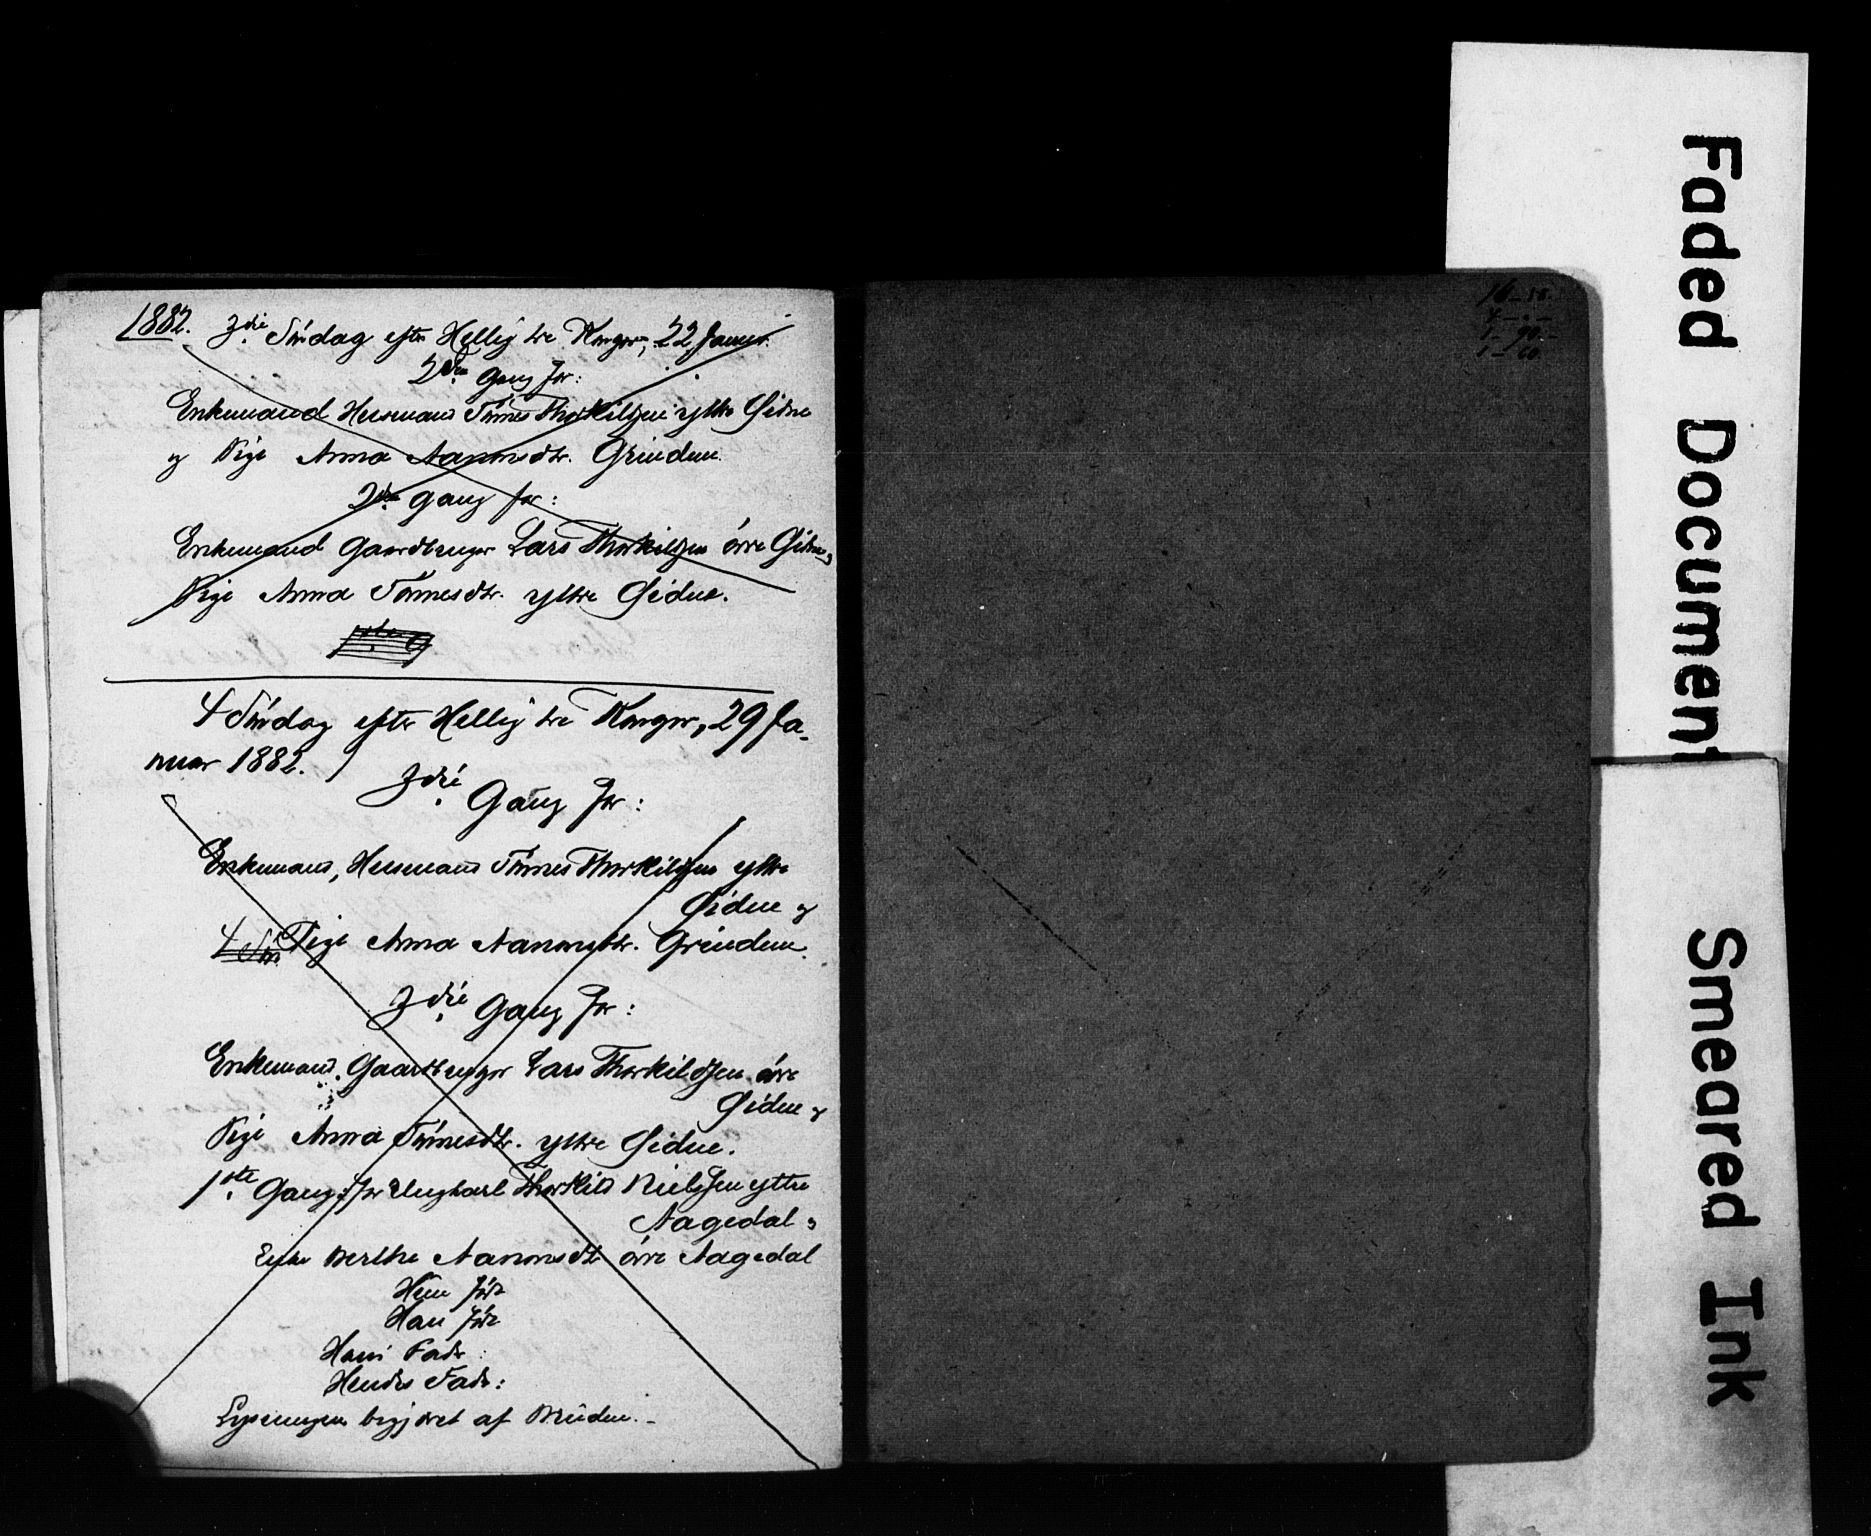 1882. 3die Søndag efter Hellig tre Konger, 22 Januar.
2den Gang for:
Enkemand Huusmand Tønnes Thorkildsen ytre Øidne
og Pige Anna Aanonsdtr. Grinden.
2den Gang for:
Enkemand Gaardbruger Lars Thorkildsen övre Øidne og
Pige Anna Tønnesdtr. ytre Øidne.
4 Søndag efter Hellig tre Konger, 29 Ja-
nuar 1882.
3die Gang for:
Enkemand, Huusmand Tønnes Thorkildsen ytre
Øidne og
Pige Anna Aanonsdtr. Grinden.
3die Gang for:
Enkemand, Gaardbruger Lars Thorkildsen övre
Øidne og
Pige Anna Tønnesdtr. ytre Øidne.
1ste Gang for Ungkarl Thorkild Nielsen ytre
Aagedal og
Enke Berthe Aanonsdtr övre Aagedal
Hun född
Han född
Hans Fader:
Hendes Fader:
Lysningen begjæret af Bruden.
1-90-
1-60.
Faded Document
Smeared Ink